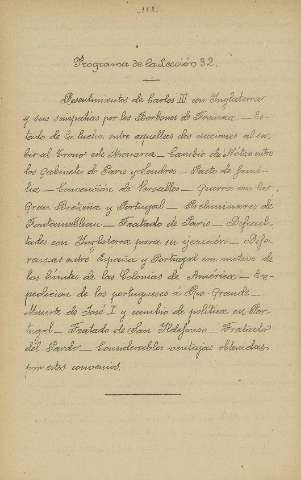 112.
Programa de la Lección 32.
Resentimientos de Carlos III con Inglaterra
y sus simpatías por los Borbones de Francia — Es-
tado de la lucha entre aquellas dos naciones al su-
bir al Trono este Monarca — Cambio de Notas entre
los Gabinetes de París y Londres — Pacto de fami-
lia — Convención de Versalles — Guerra con la
Gran Bretaña y Portugal — Preliminares de
Fontainebleau — Tratado de París — Dificul-
tades con Inglaterra para su ejecución — Dife-
rencias entre España y Portugal con motivo de
los límites de las Colonias de América — Ex-
pedición de los portugueses á Rio Grande —
Muerte de José I y cambio de política en Por-
tugal — Tratado de San Ildefonso — Tratado
del Pardo — Considerables ventajas obtenidas
por estos convenios.